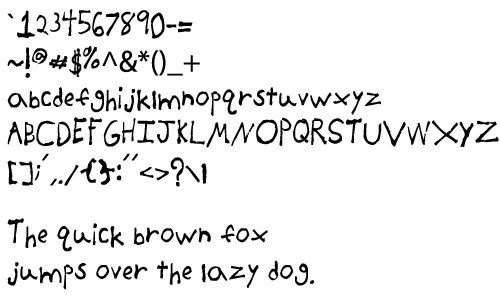 `1234567890-=
~!@#$%^&*()_+
abcdefghijklmnopqrstuvwxyz
ABCDEFGHIJKLMNOPQRSTUVWXYZ
[];',./{}:"<>?\|
The quick brown fox
jumps over the lazy dog.